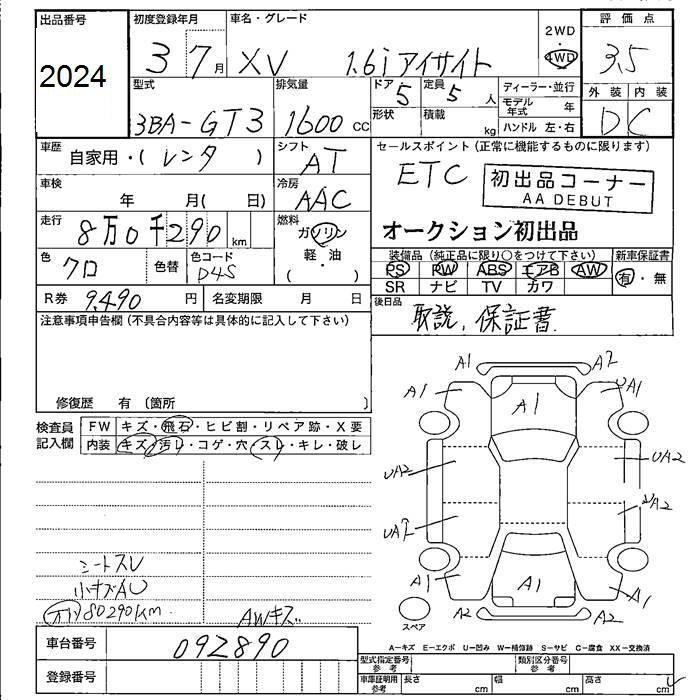 出品番号
2024
初度登録年月
3 7月
車名・グレード
XV 1.6i アイサイト
2WD
4WD
評価点
3.5
型式
3BA-GT3
排気量
1600 cc
ドア 5
定員 5 人
形状
積載 kg
ディーラー・並行
モデル年式 年
ハンドル 左・右
外装 内装
D C
車歴
自家用・(レンタ )
シフト
AT
セールスポイント(正常に機能するものに限ります)
ETC
初出品コーナー
AA DEBUT
オークション初出品
車検
年 月( 日)
冷房
AAC
走行
8万0千290 km
燃料
ガソリン
軽・油
( )
色
クロ
色替
色コード
D4S
装備品(純正品に限り○をつけて下さい)
新車保証書
PS PW ABS エアB AW
有・無
SR ナビ TV カワ
R券 9,490 円
名変期限 月 日
後日品
取説、保証書
注意事項申告欄(不具合内容等は具体的に記入して下さい)
修復歴 有 〔箇所 〕
検査員記入欄
FW キズ・飛石・ヒビ割・リペア跡・X要
内装 キズ・汚れ・コゲ・穴・スレ・キレ・破レ
シートスレ
小キズAU
80290km.
AWキズ
A1 A2
A1 A1 UA1
UA2 UA2
UA2 UA2
A1 A1 A1
A2 A2
スペア
A−キズ E−エクボ U−凹み W−補修跡 S−サビ C−腐食 XX−交換済
車台番号 092890
登録番号
型式指定番号 参考
類別区分番号 参考
車庫証明用 参考
長さ cm
幅 cm
高さ cm